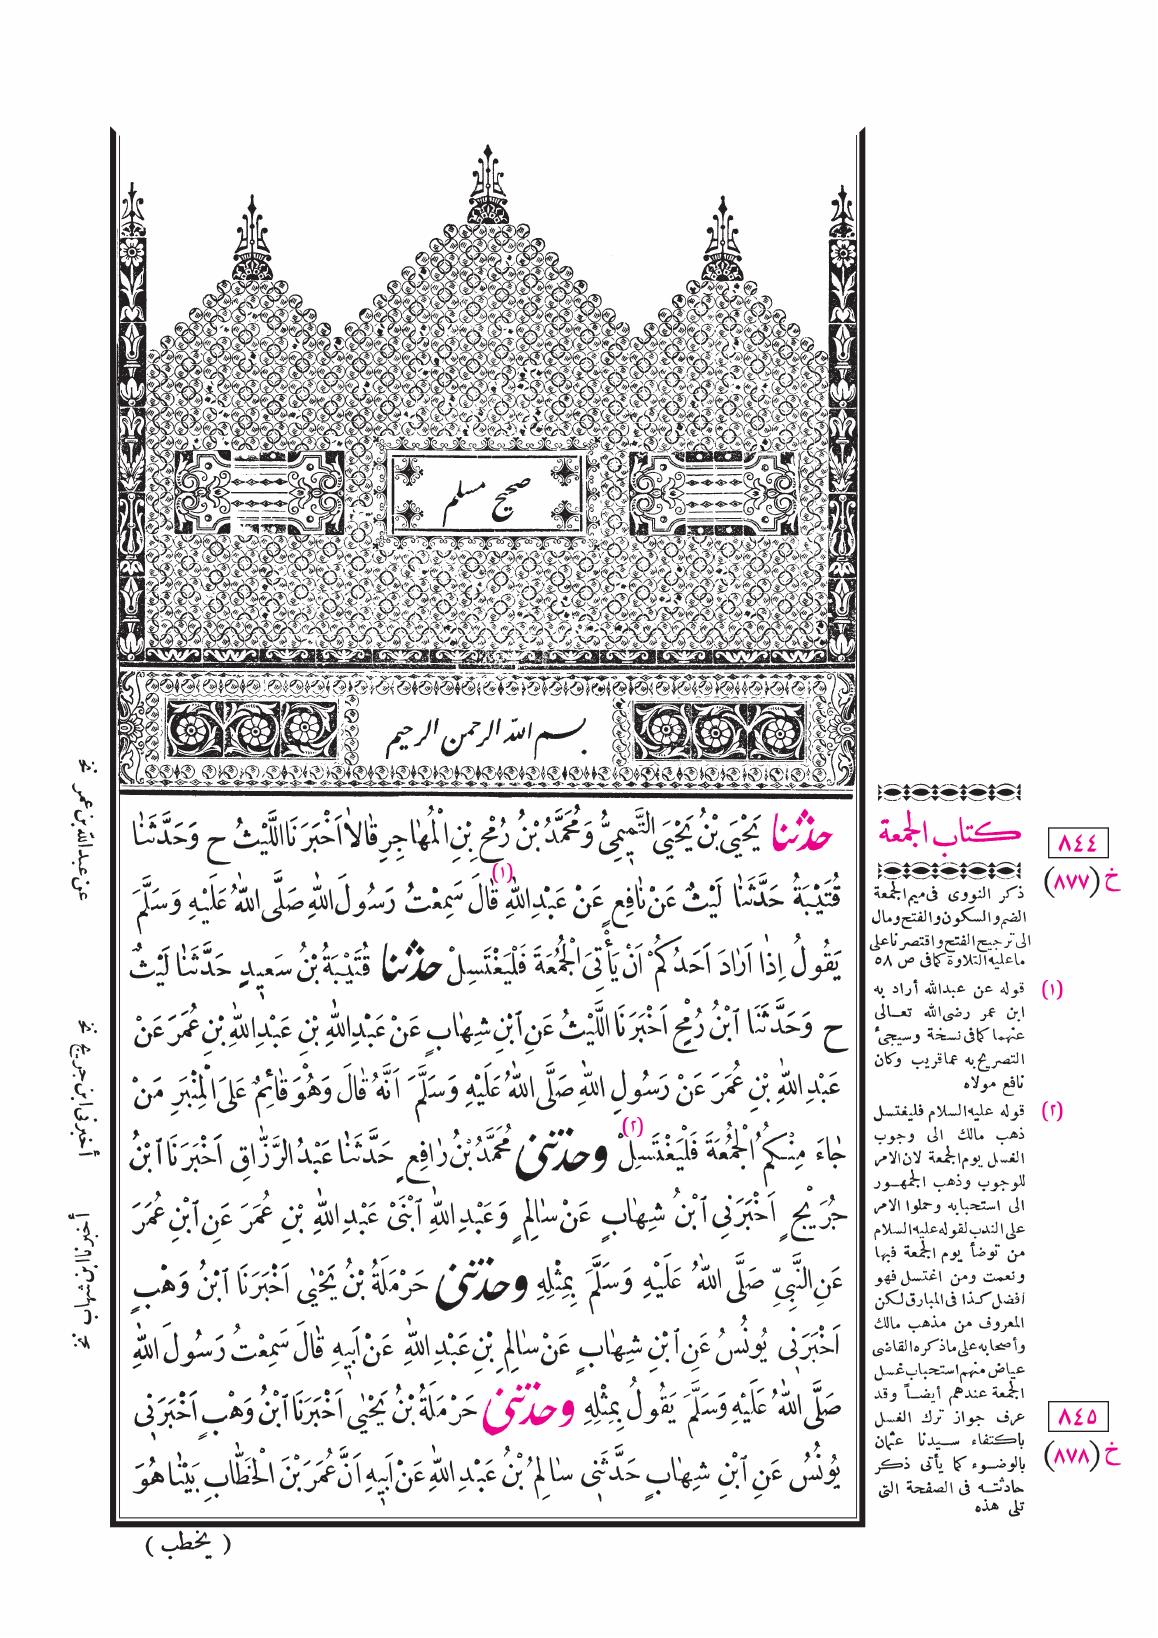 صحيح مسلم
بسم الله الرحمن الرحيم
حَدَّثَنَا يَحْيَى بْنُ يَحْيَى التَّمِيمِيُّ وَمُحَمَّدُ بْنُ رُمْحِ بْنِ الْمُهَاجِرِ قَالَا اَخْبَرَنَا اللَّيْثُ ح وَحَدَّثَنَا
قُتَيْبَةُ حَدَّثَنَا لَيْثٌ عَنْ نَافِعٍ عَنْ عَبْدِ اللهِ (١) قَالَ سَمِعْتُ رَسُولَ اللهِ صَلَّى اللهُ عَلَيْهِ وَسَلَّمَ
يَقُولُ اِذَا اَرَادَ اَحَدُكُمْ اَنْ يَأْتِيَ الْجُمُعَةَ فَلْيَغْتَسِلْ حَدَّثَنَا قُتَيْبَةُ بْنُ سَعِيدٍ حَدَّثَنَا لَيْثٌ
ح وَحَدَّثَنَا ابْنُ رُمْحٍ اَخْبَرَنَا اللَّيْثُ عَنِ ابْنِ شِهَابٍ عَنْ عَبْدِ اللهِ بْنِ عَبْدِ اللهِ بْنِ عُمَرَ عَنْ
عَبْدِ اللهِ بْنِ عُمَرَ عَنْ رَسُولِ اللهِ صَلَّى اللهُ عَلَيْهِ وَسَلَّمَ اَنَّهُ قَالَ وَهُوَ قَائِمٌ عَلَى الْمِنْبَرِ مَنْ
جَاءَ مِنْكُمُ الْجُمُعَةَ فَلْيَغْتَسِلْ (٢) وَحَدَّثَنِي مُحَمَّدُ بْنُ رَافِعٍ حَدَّثَنَا عَبْدُ الرَّزَّاقِ اَخْبَرَنَا ابْنُ
جُرَيْجٍ اَخْبَرَنِي ابْنُ شِهَابٍ عَنْ سَالِمٍ وَعَبْدِ اللهِ ابْنَيْ عَبْدِ اللهِ بْنِ عُمَرَ عَنِ ابْنِ عُمَرَ
عَنِ النَّبِيِّ صَلَّى اللهُ عَلَيْهِ وَسَلَّمَ بِمِثْلِهِ وَحَدَّثَنِي حَرْمَلَةُ بْنُ يَحْيَى اَخْبَرَنَا ابْنُ وَهْبٍ
اَخْبَرَنِي يُونُسُ عَنِ ابْنِ شِهَابٍ عَنْ سَالِمِ بْنِ عَبْدِ اللهِ عَنْ اَبِيهِ قَالَ سَمِعْتُ رَسُولَ اللهِ
صَلَّى اللهُ عَلَيْهِ وَسَلَّمَ يَقُولُ بِمِثْلِهِ وَحَدَّثَنِي حَرْمَلَةُ بْنُ يَحْيَى اَخْبَرَنَا ابْنُ وَهْبٍ اَخْبَرَنِي
يُونُسُ عَنِ ابْنِ شِهَابٍ حَدَّثَنِي سَالِمُ بْنُ عَبْدِ اللهِ عَنْ اَبِيهِ اَنَّ عُمَرَ بْنَ الْخَطَّابِ بَيْنَا هُوَ
( يخطب )
كتاب الجمعة
٨٤٤
خ (٨٧٧)
ذكر النووى فى ميم الجمعة
الضم والسكون والفتح ومال
الى ترجيح الفتح واقتصرنا على
ما عليه التلاوة كما فى ص ٥٨
(١) قوله عن عبدالله أراد به
ابن عمر رضى الله تعالى
عنهما كما فى نسخة وسيجئ
التصريح به عما قريب وكان
نافع مولاه
(٢) قوله عليه السلام فليغتسل
ذهب مالك الى وجوب
الغسل يوم الجمعة لان الامر
للوجوب وذهب الجمهور
الى استحبابه وحملوا الامر
على الندب لقوله عليه السلام
من توضأ يوم الجمعة فبها
ونعمت ومن اغتسل فهو
أفضل كذا فى المبارق لكن
المعروف من مذهب مالك
وأصحابه على ما ذكره القاضى
عياض منهم استحباب غسل
الجمعة عندهم أيضاً وقد
عرف جواز ترك الغسل
باكتفاء سيدنا عثمان
بالوضوء كما يأتى ذكر
حادثته فى الصفحة التى
تلى هذه
٨٤٥
خ (٨٧٨)
عن عبدالله بن عمر نخ
أخبرنى ابن جريج نخ